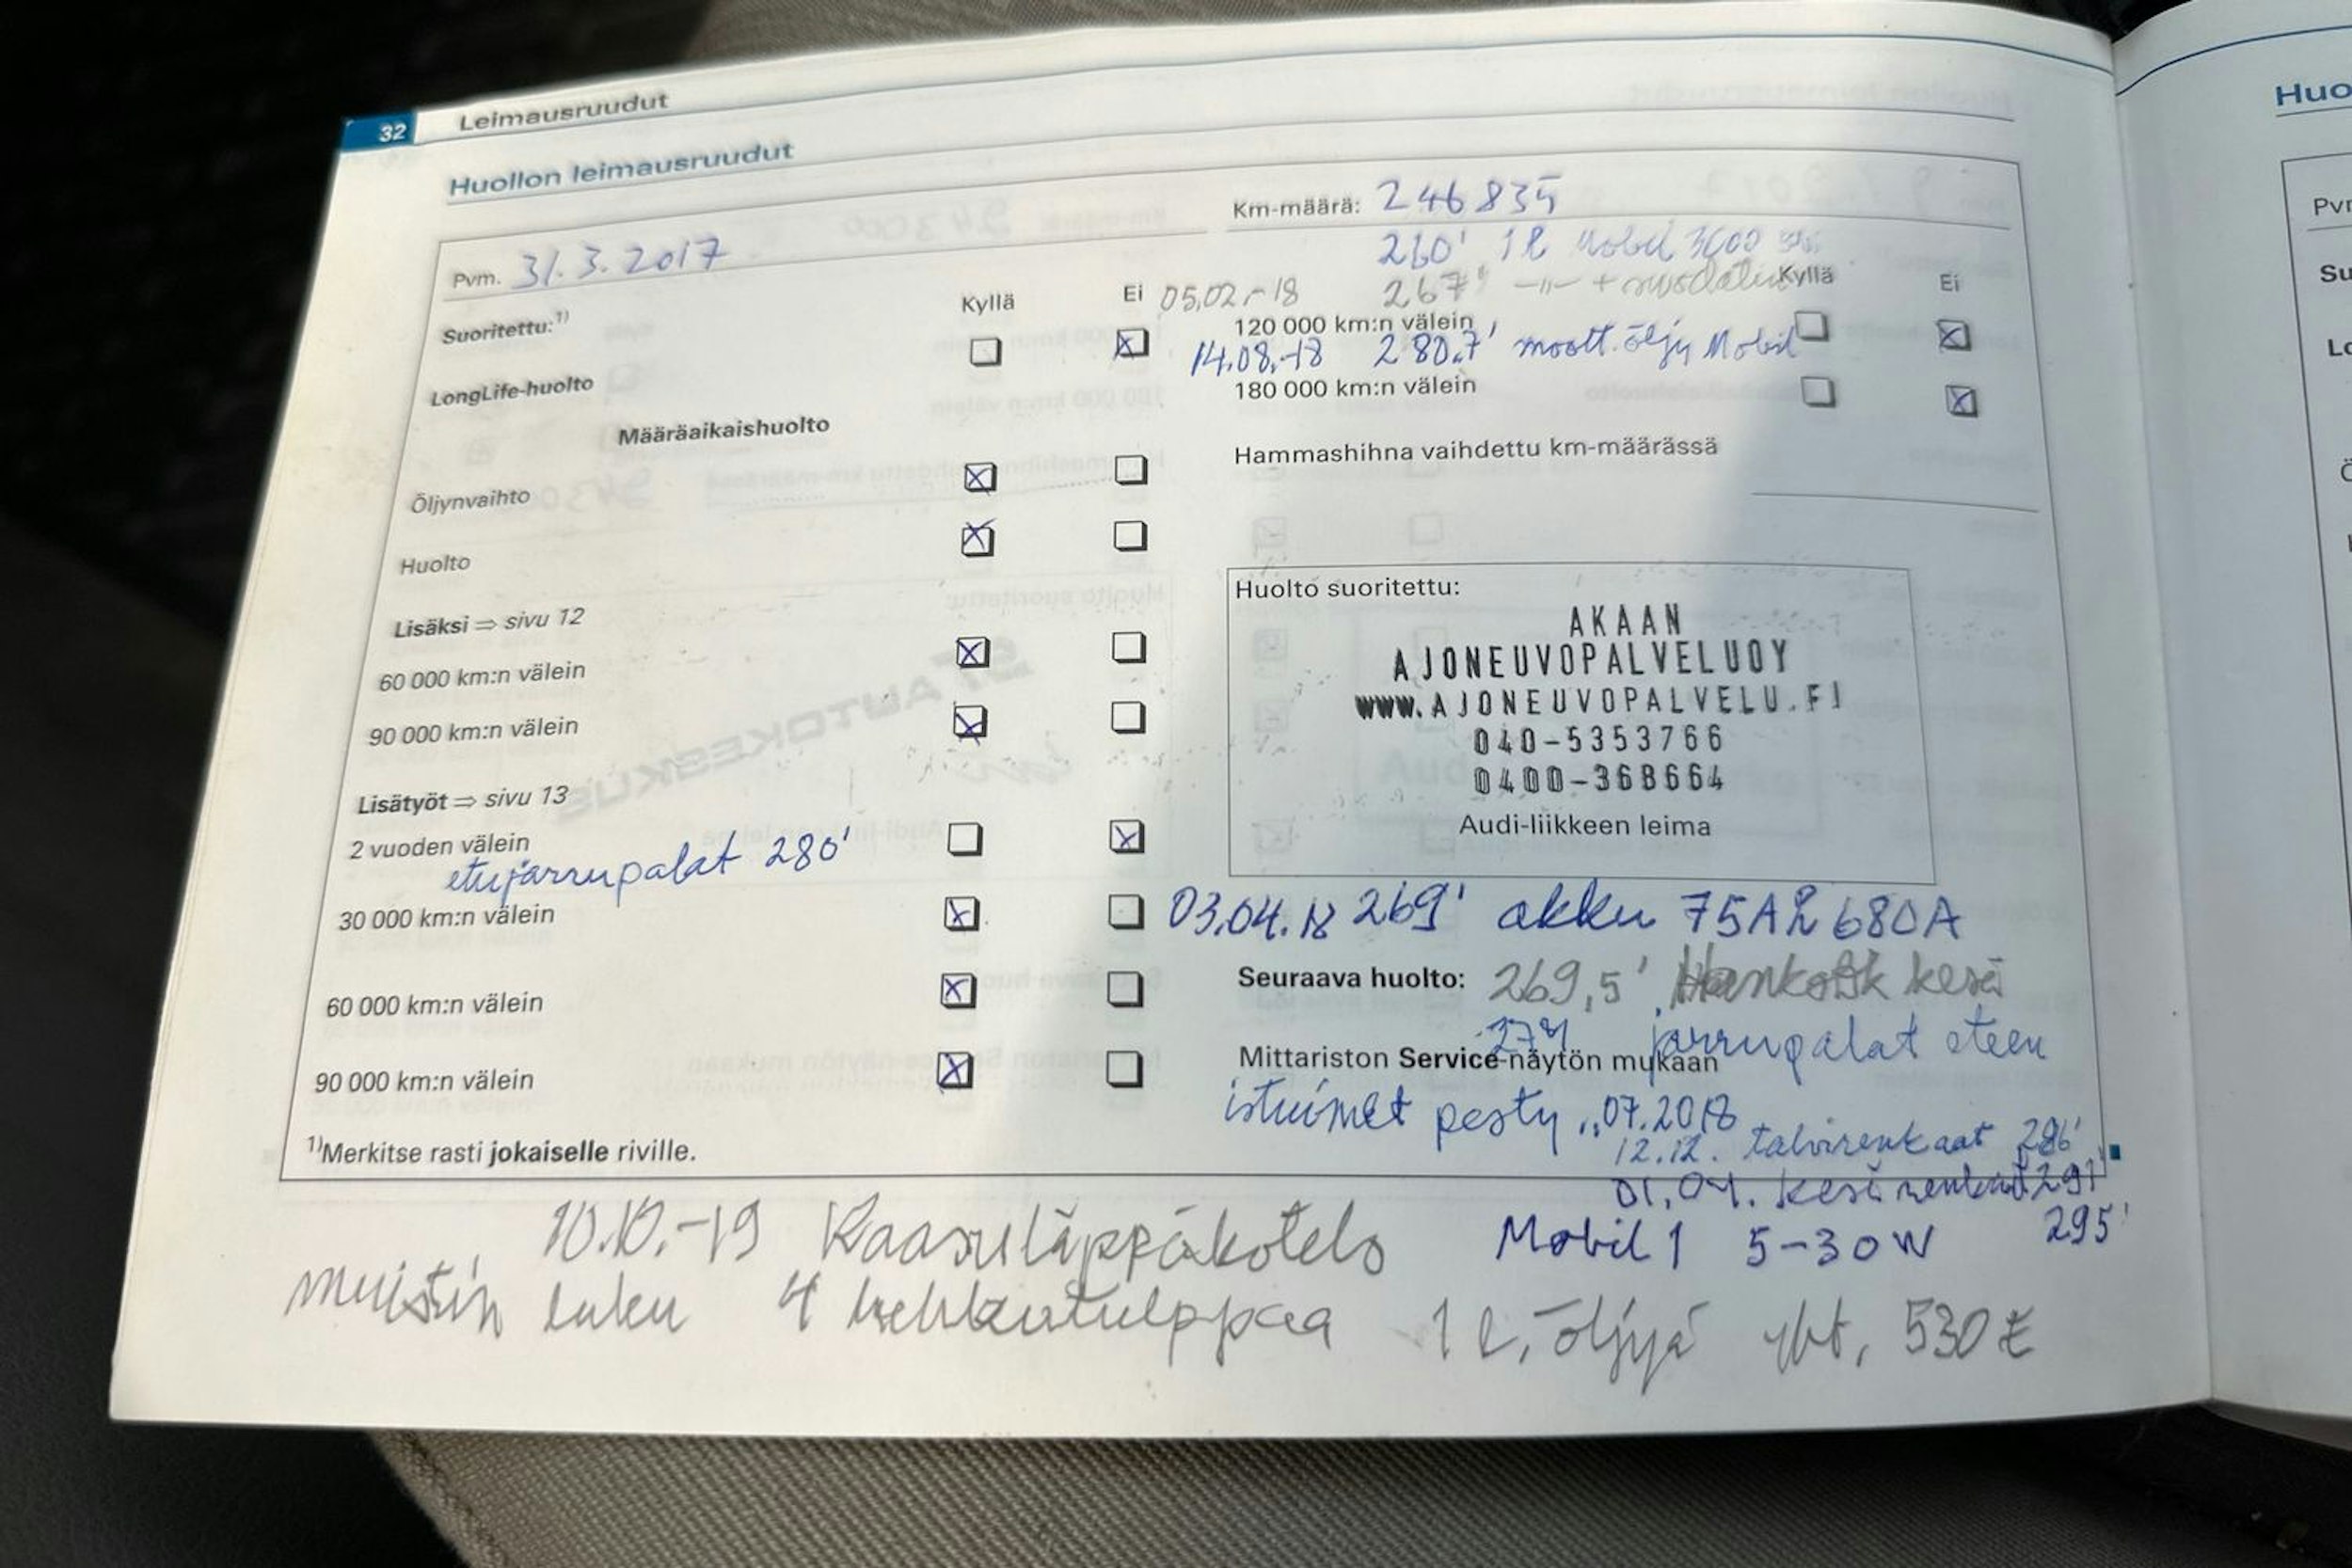 32 Leimausruudut
Huollon leimausruudut
Pvm. 31.3.2017
Suoritettu:1)
Kyllä Ei
LongLife-huolto
Määräaikaishuolto
Öljynvaihto
Huolto
Lisäksi ⇒ sivu 12
60 000 km:n välein
90 000 km:n välein
Lisätyöt ⇒ sivu 13
2 vuoden välein
etujarrupalat 280'
30 000 km:n välein
60 000 km:n välein
90 000 km:n välein
1)Merkitse rasti jokaiselle riville.
Km-määrä: 246835
260' 1l Mobil 3000
05.02.-18 267' -"- +
Kyllä Ei
120 000 km:n välein
14.08.-18 280.7' moott. öljy Mobil
180 000 km:n välein
Hammashihna vaihdettu km-määrässä
Huolto suoritettu:
AKAAN
AJONEUVOPALVELUOY
www.AJONEUVOPALVELU.FI
040-5353766
0400-368664
Audi-liikkeen leima
03.04.18 269' akku 75Ah 680A
Seuraava huolto: 269,5' Hankook kesä
jarrupalat eteen
Mittariston Service-näytön mukaan
istuimet pesty 07.2018
12.12. talvirenkaat 286'
01.04. kesärenkaat 291'
Mobil 1 5-30W 295'
10.10.-19 Kaasuläppäkotelo
muistin luku 4 hehkutulppaa 1 l, öljyä yht. 530 €
Huo
Pvm
Su
Lo